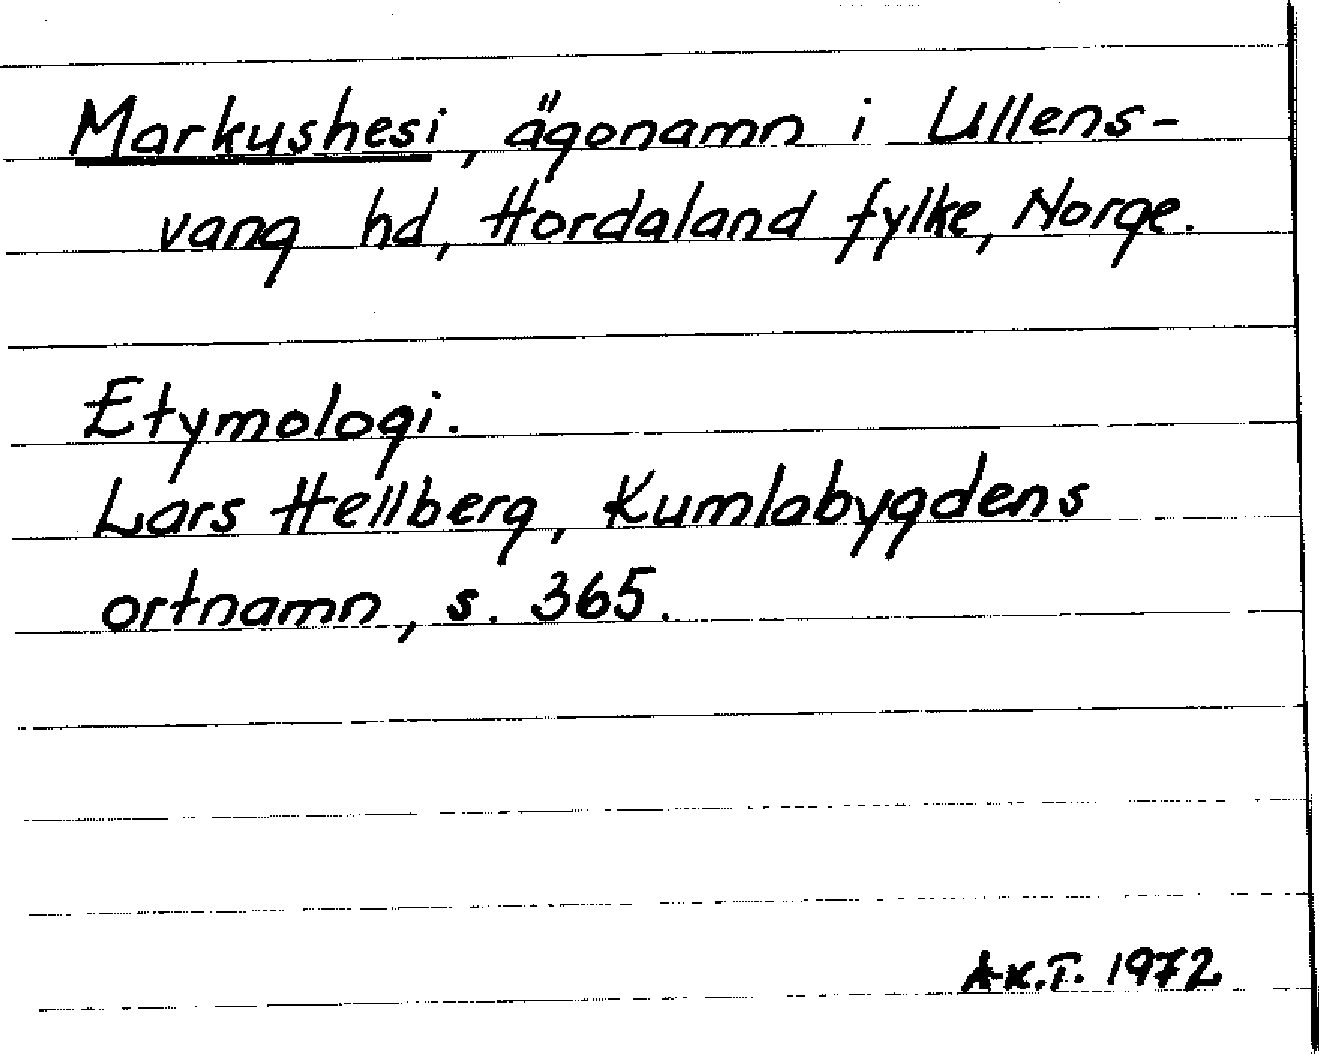 Markushesi, ägonamn i Ullens-
vang hd, Hordaland fylke, Norge.
Etymologi.
Lars Hellberg, Kumlabygdens
ortnamn, s. 365.
A-K.T. 1972